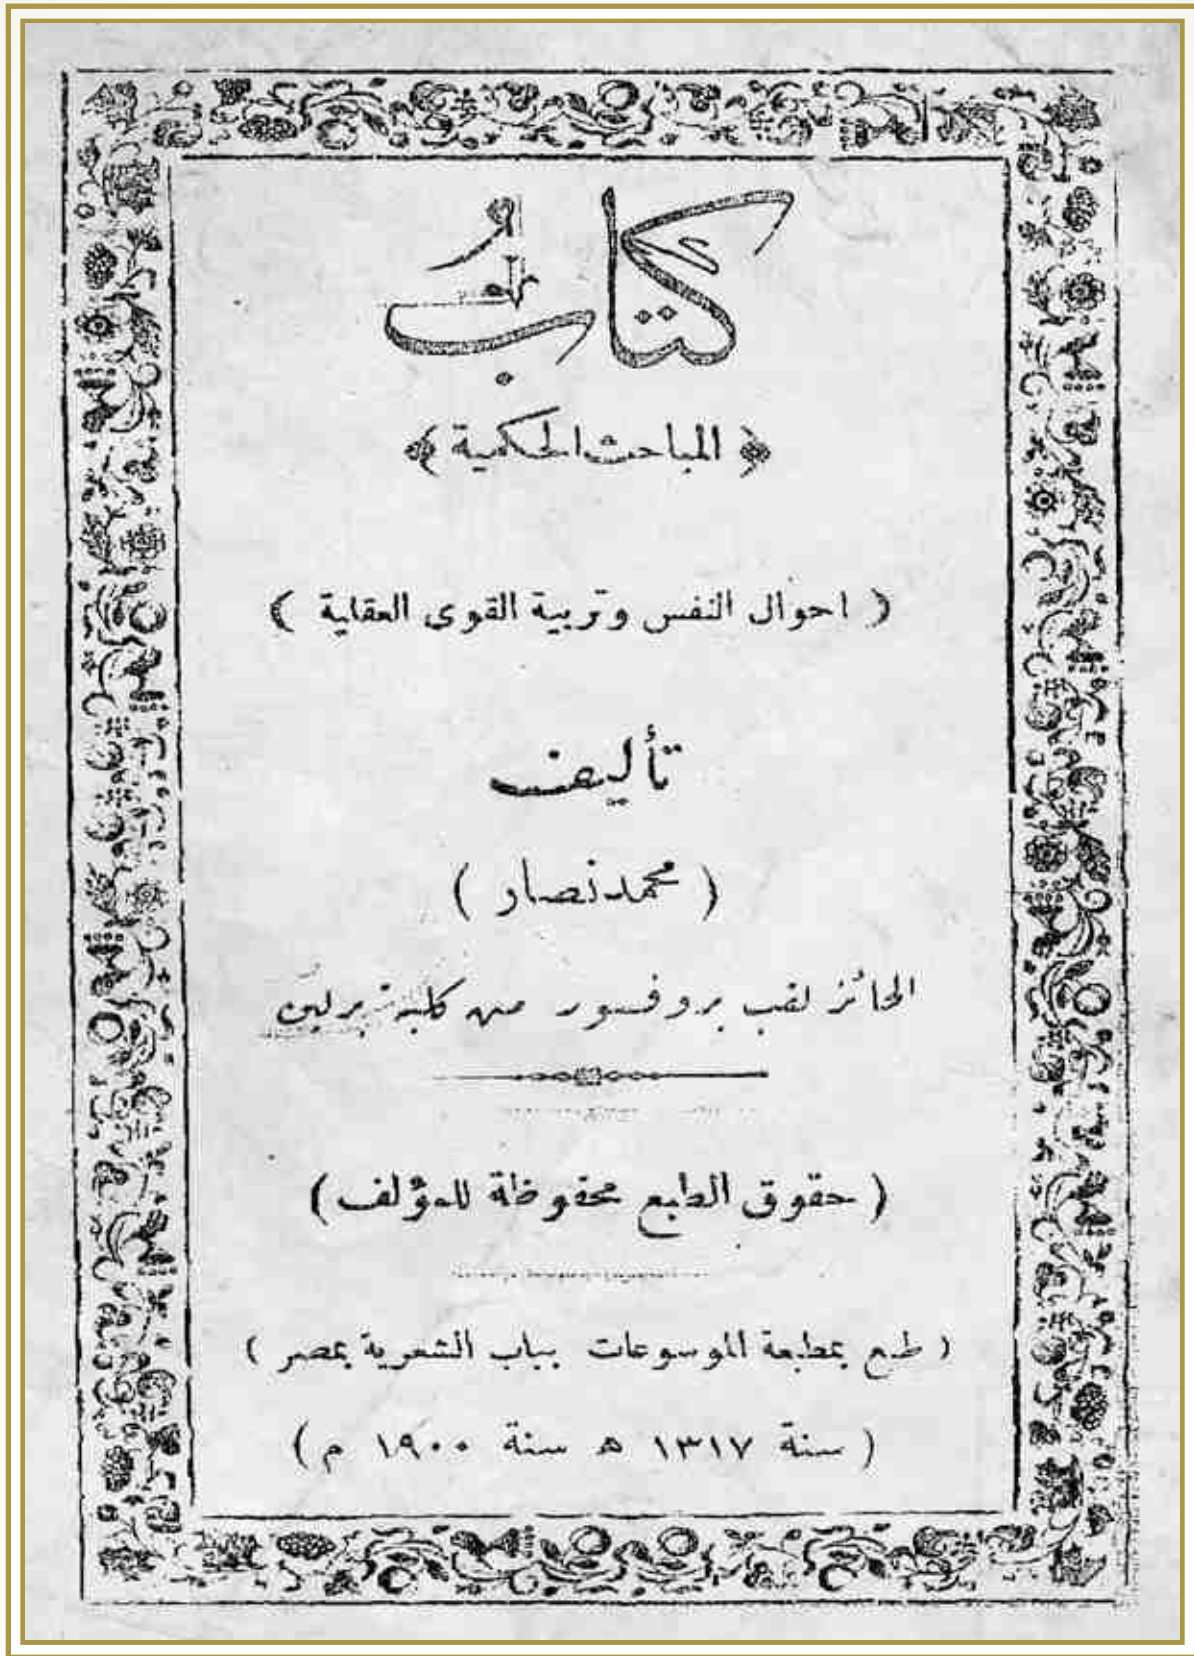 كتاب
﴿ المباحث الحكمية ﴾
( احوال النفس وتربية القوى العقلية )
تأليف
( محمد نصار )
الحائز لقب بروفسور من كلية برلين
( حقوق الطبع محفوظة للمؤلف )
( طبع بمطبعة الموسوعات بباب الشعرية بمصر )
( سنة ١٣١٧ ه سنة ١٩٠٠ م )